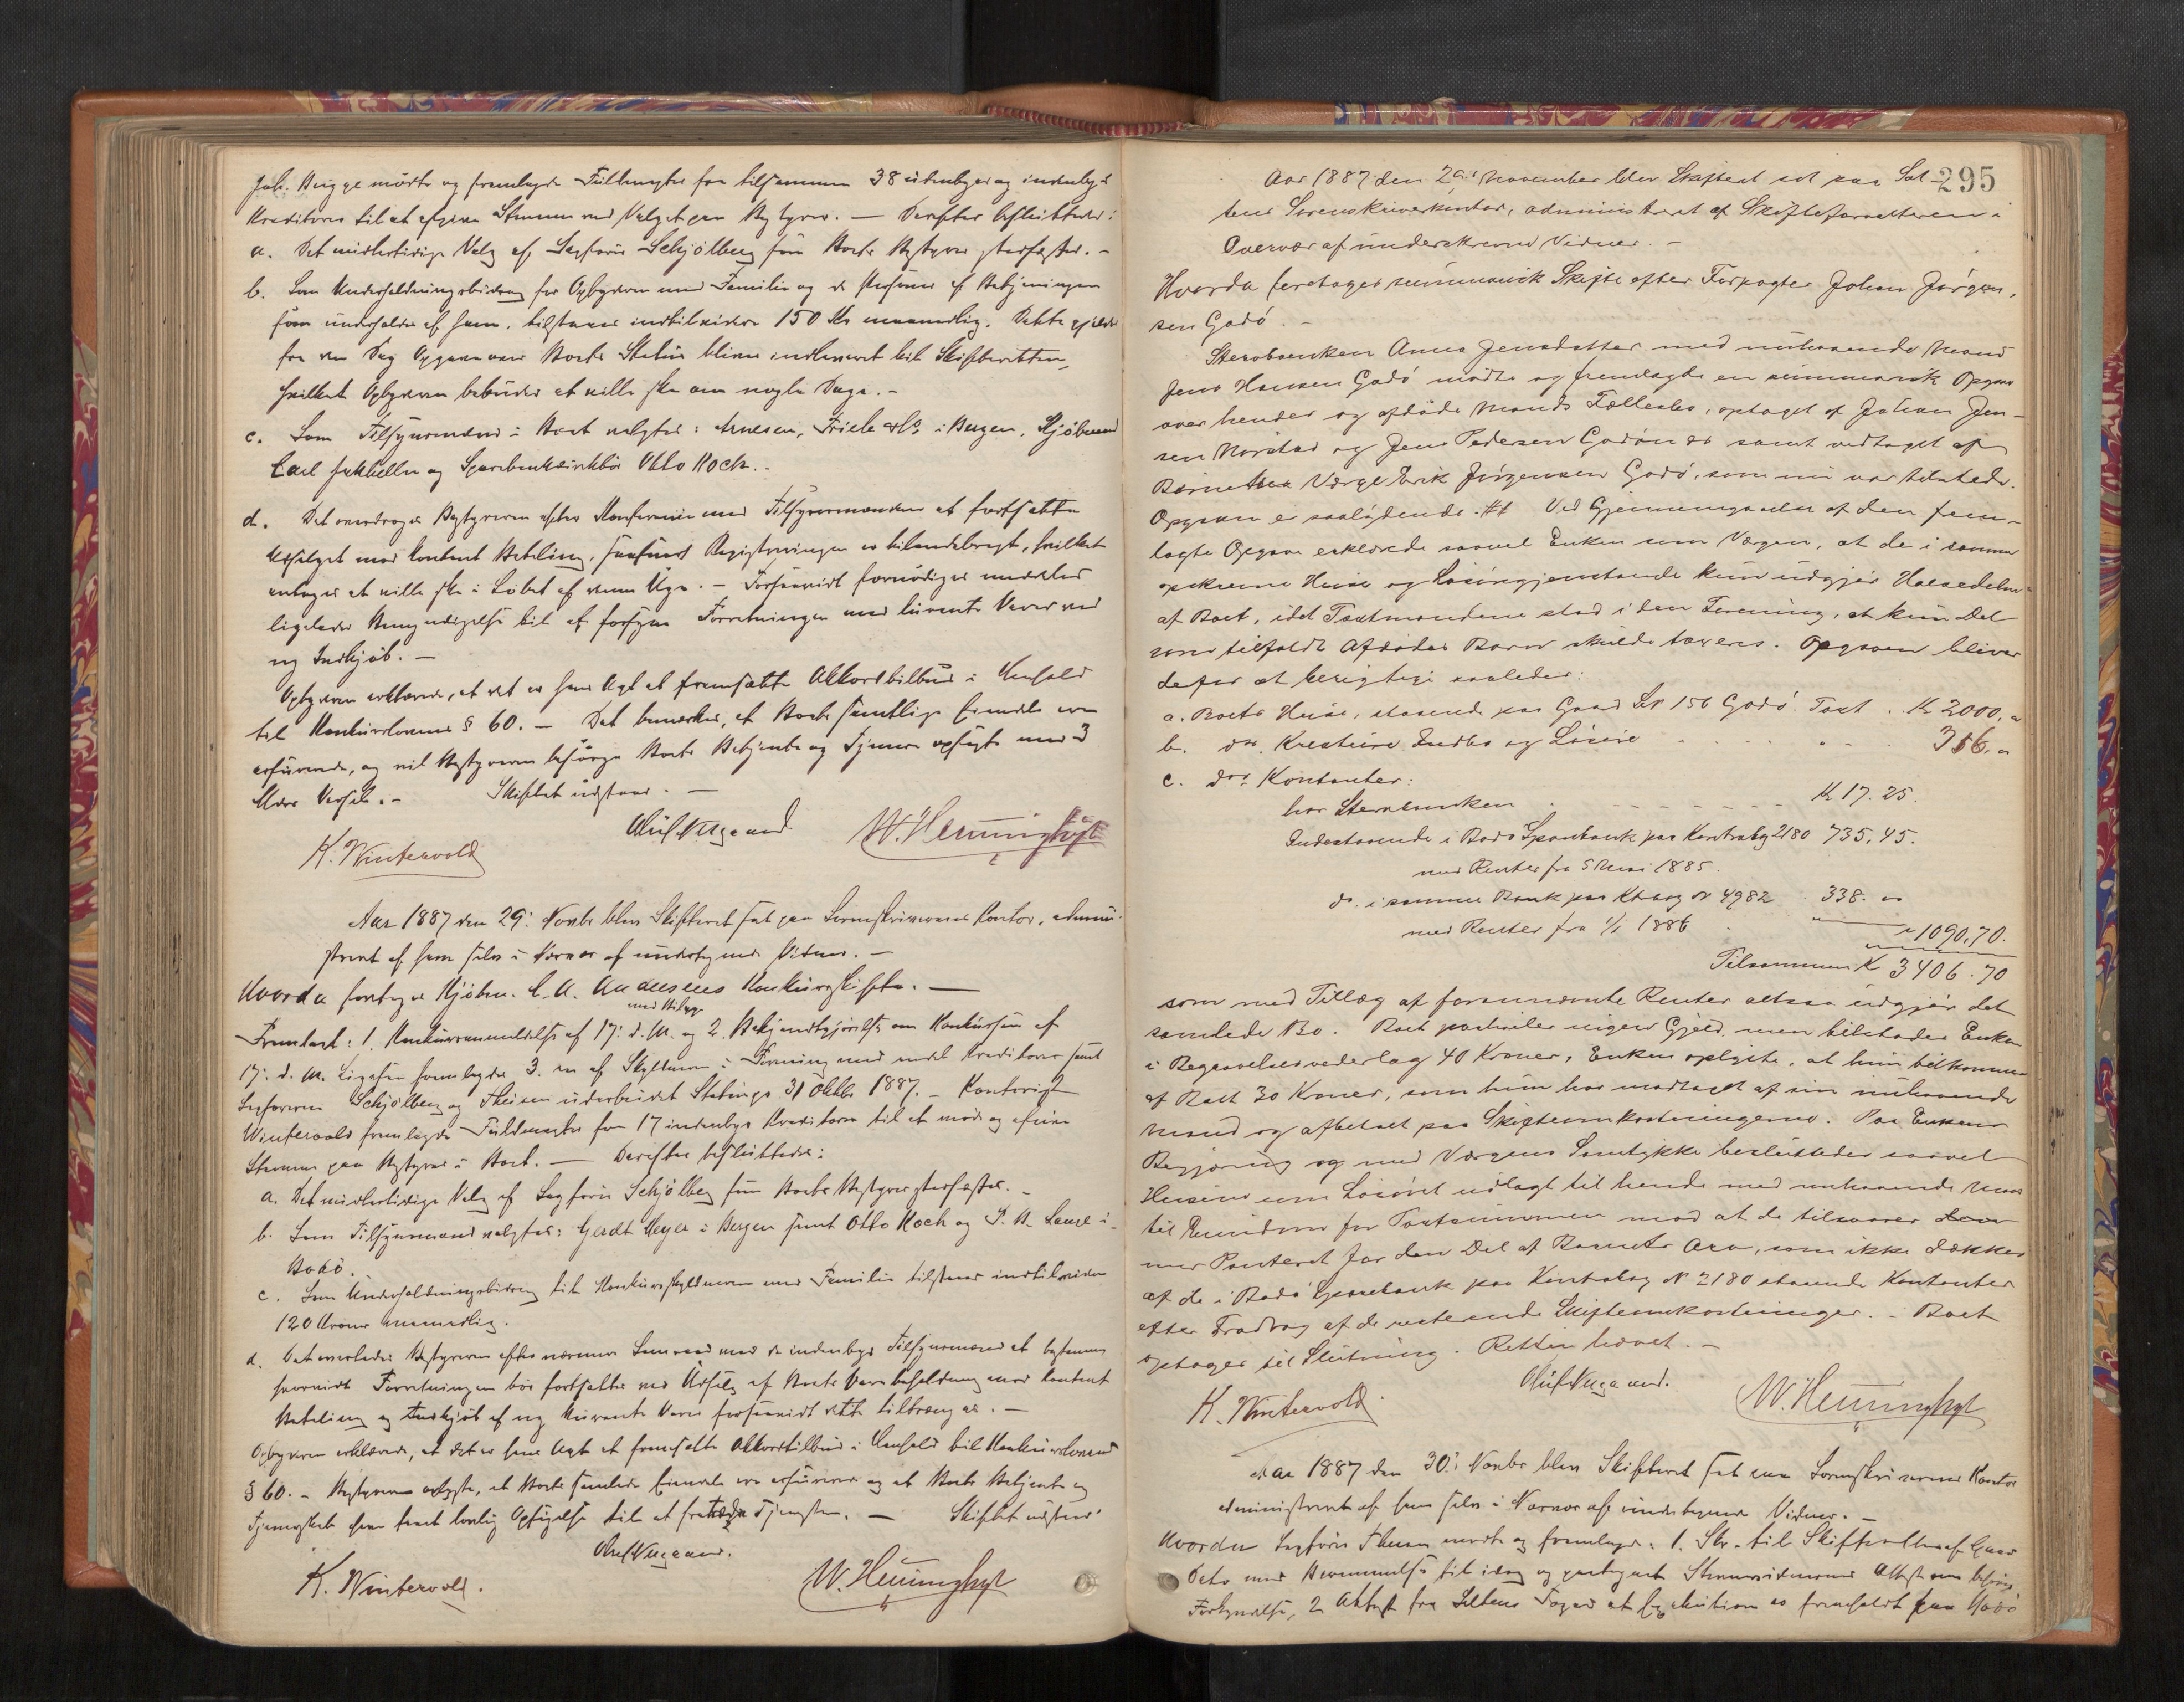 Joh. Bugge mødte og fremlagde Fuldmagter fra tilsammen 38 udenbyes og indenbyes
Kreditorer til at afgive Stemme ved Valget paa Bestyrer. — Derefter besluttedes:
a. Det midlertidige Valg af Sagfører Schjølberg som Boets Bestyrer stadfæstes. -
b. Som Underholdningsbidrag for Opbyderen med Familie og de Personer af Betjeningen
som underholdes af ham, tilstaaes indtilvidere 150 Kr maanedlig. Dette gjælder
fra den Dag Opgave over Boets Status bliver indleveret til Skifteretten,
hvilket Opbyderen bebuder at ville ske om nogle Dage. -
c. Som Tilsynsmænd i Boet valgtes: Arnesen, Friele & Co i Bergen, Kjøbmand
Carl Jakhelln og Sparebankdirektør Otto Koch. -
d. Det overdroges Bestyreren efter Konference med Tilsynsmændene at fortsætte
Udsalget mod kontant Betaling, saasnart Registreringen er tilendebragt, hvilket
antages at ville ske i Løbet af denne Uge. - Forsaavidt fornødiges meddeles
ligeledes Bemyndigelse til at forsyne Forretningen med kurante Varer ved
ny Indkjøb. —
Opbyderen erklærede, at det er hans Agt at fremsætte Akkordtilbud i Henhold
til Konkurslovens § 60. — Det bemærkes, at Boets samtlige Eiendele ere
assurerede, og vil Bestyreren besørge Boets Betjente og Tjenere opsagte med 3
Mdrs Varsel. - Skiftet udstaar. —
K. Wintervold Oluf Nygaard W. Hemminghyt
Aar 1887 den 29: Novbr blev Skifteret sat paa Sorenskriverens Kontor, admini-
streret af ham selv i Nærvær af undertegnede Vidner. —
Hvorda foretoges Kjøbm. C. A. Andersens Konkursskifte. —
med Bilag
Fremlagt: 1. Konkursanmeldelse af 17: d. M. og 2. Bekjendtgjørelse om Konkursen af
17: d. M. Ligesaa fremlagdes 3. en af Skyldneren i Forening med endel Kreditorer samt
Sagførerne Schjølberg og Theisen udarbeidet Status pr 31 Oktbr 1887. - Kontorist
Wintervold fremlagde Fuldmagter fra 17 indenbys Kreditorer til at møde og afgive
Stemme paa Bestyrer i Boet. — Derefter besluttedes:
a. Det midlertidige Valg af Sagfører Schjølberg som Boets Bestyrer stadfæstes. -
b. Som Tilsynsmænd valgtes: Gerdt Meyer i Bergen samt Otto Koch og J. A. Lange i
Bodø.
c. Som Underholdningsbidrag til Konkursskyldneren med Familie tilstaaes indtilvidere
120 Kroner maanedlig.
d. Det overlades Bestyreren efter nærmere Samraad med de indenbys Tilsynsmænd at bestemme
hvorvidt Forretningen bør fortsættes ved Udsalg af Boets Varebeholdning mod kontant
Betaling og Indkjøb af ny kurante Varer forsaavidt dette tiltrænges. —
Opbyderen erklærede, at det er hans Agt at fremsætte Akkordtilbud i Henhold til Konkurslovens
§ 60. - Bestyreren oplyste, at Boets samtlige Eiendele ere assurerede og at Boets Betjente og
Tjenerskab have faaet lovlig Opsigelse til at fratræde Tjenesten. — Skiftet udstaar.
Oluf Nygaard.
K. Wintervold. W. Hemminghyt
295
Aar 1887 den 29: November blev Skifteret sat paa Sal-
tens Sorenskriverkontor, administreret af Skifteforvalteren i
Overvær af underskrevne Vidner. —
Hvorda foretoges summarisk Skifte efter Forpagter Johan Jørgen-
sen Godø. -
Stervboenken Anna Jensdatter med nuhavende Mand
Jens Hansen Godø mødte og fremlagde en summarisk Opgave
over hendes og afdøde Mands Fællesbo, optaget af Johan Jen-
sen Norstad og Jens Pedersen Godønes samt vedtaget af
Barnets Værge Erik Jørgensen Godø, som nu var tilstede.
Opgaven er saalydende: ## Ved Gjennemgaaelse af den frem-
lagte Opgave erklærede saavel Enken som Værgen, at de i samme
opskrevne Huse og Løsøregjenstande kun udgjør Halvedelen
af Boet, idet Taxtmændene stod i den Formening, at kun Det
som tilfaldt Afdødes Barn skulde taxeres. Opgaven bliver
derfor at berigtige saaledes:
a. Boets Huse, staaende paa Gaard Lnr 156 Godø. Taxt . Kr 2000. "
b. do. Kreature Indbo og Løsøre . . . . " . . 316. "
c. do. Kontanter:
hos Stervboenken . - - - - - - - Kr 17. 25.
Indestaaende i Bodø Sparebank paa Kontrabog 2180 735, 45.
med Renter fra 5 Mai 1885.
do. i samme Bank paa Ktrabog № 4982 . 338. "
med Renter fra 1/1 1886 . " 1090. 70.
Tilsammen Kr 3406. 70
som med Tillæg af forannævnte Renter altsaa udgjør det
samlede Bo. Boet paahviler ingen Gjæld men tilstodes Enken
i Begravelsesvederlag 40 Kroner, Enken oplyste, at hun tilkommer
af Boet 30 Kroner, som hun har modtaget af sin nuhavende
Mand og afbetalt paa Skifteomkostningerne. Paa Enkens
Begjæring og med Værgens Samtykke besluttedes saavel
Husene som Løsøret udlagt til hende med nuhavende Mand
til Eiendom for Taxtsummen mod at de tilsvarer
mer Panteret for den Del af Barnets Arv, som ikke dækkes
af de i Bodø Sparebank paa Kontrabog № 2180 staaende Kontanter
efter Fradrag af de resterende Skifteomkostninger. - Boet
optages til Slutning. Retten hævet. -
K. Wintervold. Oluf Nygaard. W. Hemminghyt
Aar 1887 den 30: Novbr blev Skifteret sat paa Sorenskriverens Kontor
administreret af ham selv i Nærvær af undertegnede Vidner. -
Hvorda Sagfører Theisen mødte og fremlagde: 1. Skr. til Skifteretten af Gaars
Dato med Berammelse til idag og paategnet Stevnevidnernes Attest om behørig
Forkyndelse, 2. Attest fra Saltens Foged at Exekution er fremholdt paa Bodø